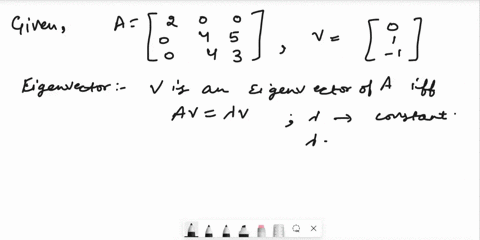 Given, A = [ 2 0 0
0 4 5
0 4 3 ] , V = [ 0
1
-1 ]
Eigenvector:- V is an Eigenvector of A iff
AV = λV ; λ → constant.
λ.